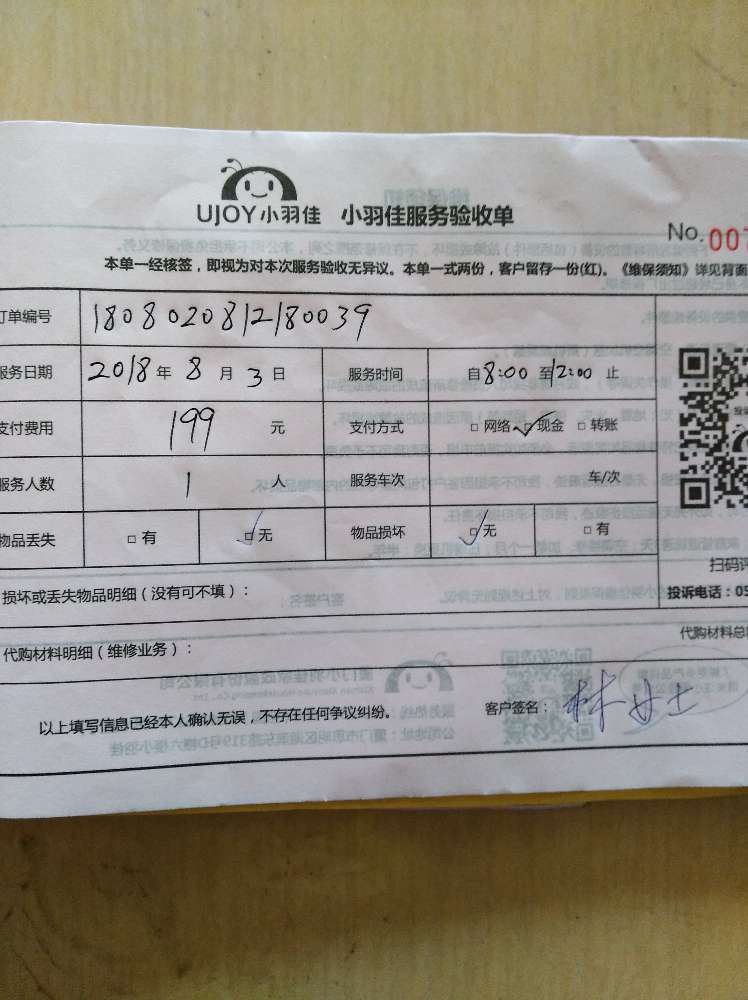 UJOY小羽佳 小羽佳服务验收单
No.007
本单一经核签，即视为对本次服务验收无异议。本单一式两份，客户留存一份(红)。《维保须知》详见背面
订单编号 1808020812180039
服务日期 2018 年 8 月 3 日 服务时间 自8:00 至12:00 止
支付费用 199 元 支付方式 □ 网络 ☑ 现金 □ 转账
服务人数 1 人 服务车次 车/次
物品丢失 □ 有 ☑ 无 物品损坏 ☑ 无 □ 有
扫码评
损坏或丢失物品明细（没有可不填）： 投诉电话：05
代购材料明细（维修业务）： 代购材料总
以上填写信息已经本人确认无误，不存在任何争议纠纷。 客户签名： 林女士